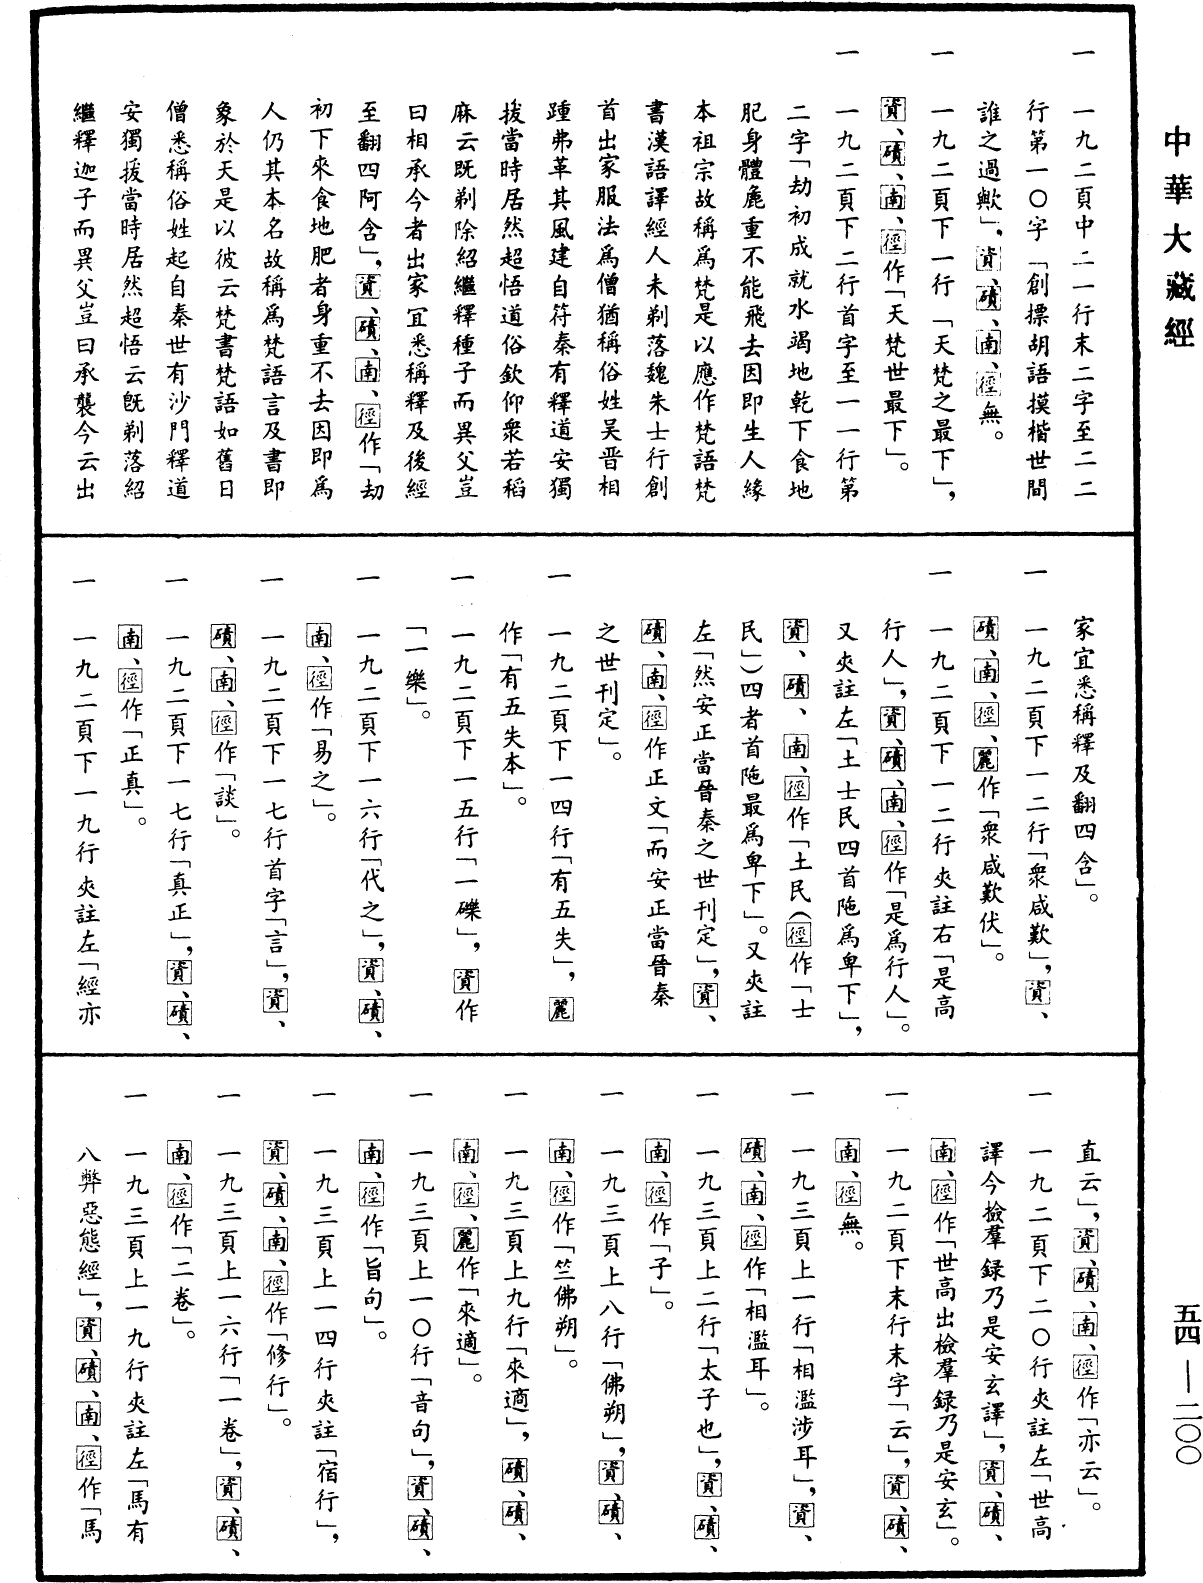 中華大藏經
一 一九二頁中二一行末二字至二二
行第一〇字「創摽胡語摸楷世間
誰之過歟」，資、磧、南、徑無。
一 一九二頁下一行「天梵之最下」，
資、磧、南、徑作「天梵世最下」。
一 一九二頁下二行首字至一一行第
二字「劫初成就水竭地乾下食地
肥身體麁重不能飛去因即生人緣
本祖宗故稱爲梵是以應作梵語梵
書漢語譯經人未剃落魏朱士行創
首出家服法爲僧猶稱俗姓吴晋相
踵弗革其風建自符秦有釋道安獨
拔當時居然超悟道俗欽仰衆若稻
麻云既剃除紹繼釋種子而異父豈
曰相承今者出家宜悉稱釋及後經
至翻四阿含」，資、磧、南、徑作「劫
初下來食地肥者身重不去因即爲
人仍其本名故稱爲梵語言及書即
象於天是以彼云梵書梵語如舊日
僧悉稱俗姓起自秦世有沙門釋道
安獨拔當時居然超悟云旣剃落紹
繼釋迦子而異父豈曰承襲今云出
家宜悉稱釋及翻四含」。
一 一九二頁下一二行「衆咸歎」，資、
磧、南、徑、麗作「衆咸歎伏」。
一 一九二頁下一二行夾註右「是高
行人」，資、磧、南、徑作「是爲行人」。
又夾註左「土士民四首陁爲卑下」，
資、磧、南、徑作「土民（徑作「士
民」）四者首陁最爲卑下」。又夾註
左「然安正當晉秦之世刊定」，資、
磧、南、徑作正文「而安正當晉秦
之世刊定」。
一 一九二頁下一四行「有五失」，麗
作「有五失本」。
一 一九二頁下一五行「一礫」，資作
「一樂」。
一 一九二頁下一六行「代之」，資、磧、
南、徑作「易之」。
一 一九二頁下一七行首字「言」，資、
磧、南、徑作「談」。
一 一九二頁下一七行「真正」，資、磧、
南、徑作「正真」。
一 一九二頁下一九行夾註左「經亦
直云」，資、磧、南、徑作「亦云」。
一 一九二頁下二〇行夾註左「世高
譯今撿羣録乃是安玄譯」，資、磧、
南、徑作「世高出檢羣録乃是安玄」。
一 一九二頁下末行末字「云」，資、磧、
南、徑無。
一 一九三頁上一行「相濫涉耳」，資、
磧、南、徑作「相濫耳」。
一 一九三頁上二行「太子也」，資、磧、
南、徑作「子」。
一 一九三頁上八行「佛朔」，資、磧、
南、徑作「竺佛朔」。
一 一九三頁上九行「來適」，磧、磧、
南、徑、麗作「來適」。
一 一九三頁上一〇行「音句」，資、磧、
南、徑作「旨句」。
一 一九三頁上一四行夾註「宿行」，
資、磧、南、徑作「修行」。
一 一九三頁上一六行「一卷」，資、磧、
南、徑作「二卷」。
一 一九三頁上一九行夾註左「馬有
八弊惡態經」，資、磧、南、徑作「馬
五四—二〇〇